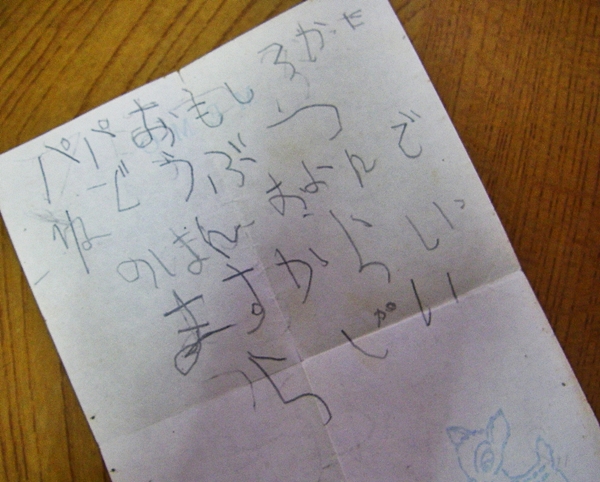 パパおもしろかた
ねでうぶつ
のほんおよんで
ますからしい
らじい